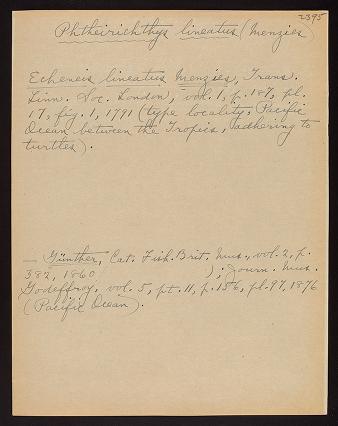 2395
Phtheirichthys lineatus (Menzies)
Echeneis lineatus Menzies, Trans.
Linn. Soc. London, vol. 1, p. 187, pl.
17, fig. 1, 1791 (type locality, Pacific
Ocean between the Tropics, adhering to
turtles).
— Günther, Cat. Fish. Brit. Mus., vol. 2, p.
382, 1860 ); Journ. Mus.
Godeffroy, vol. 5, pt. 11, p. 156, pl. 97, 1876
(Pacific Ocean).